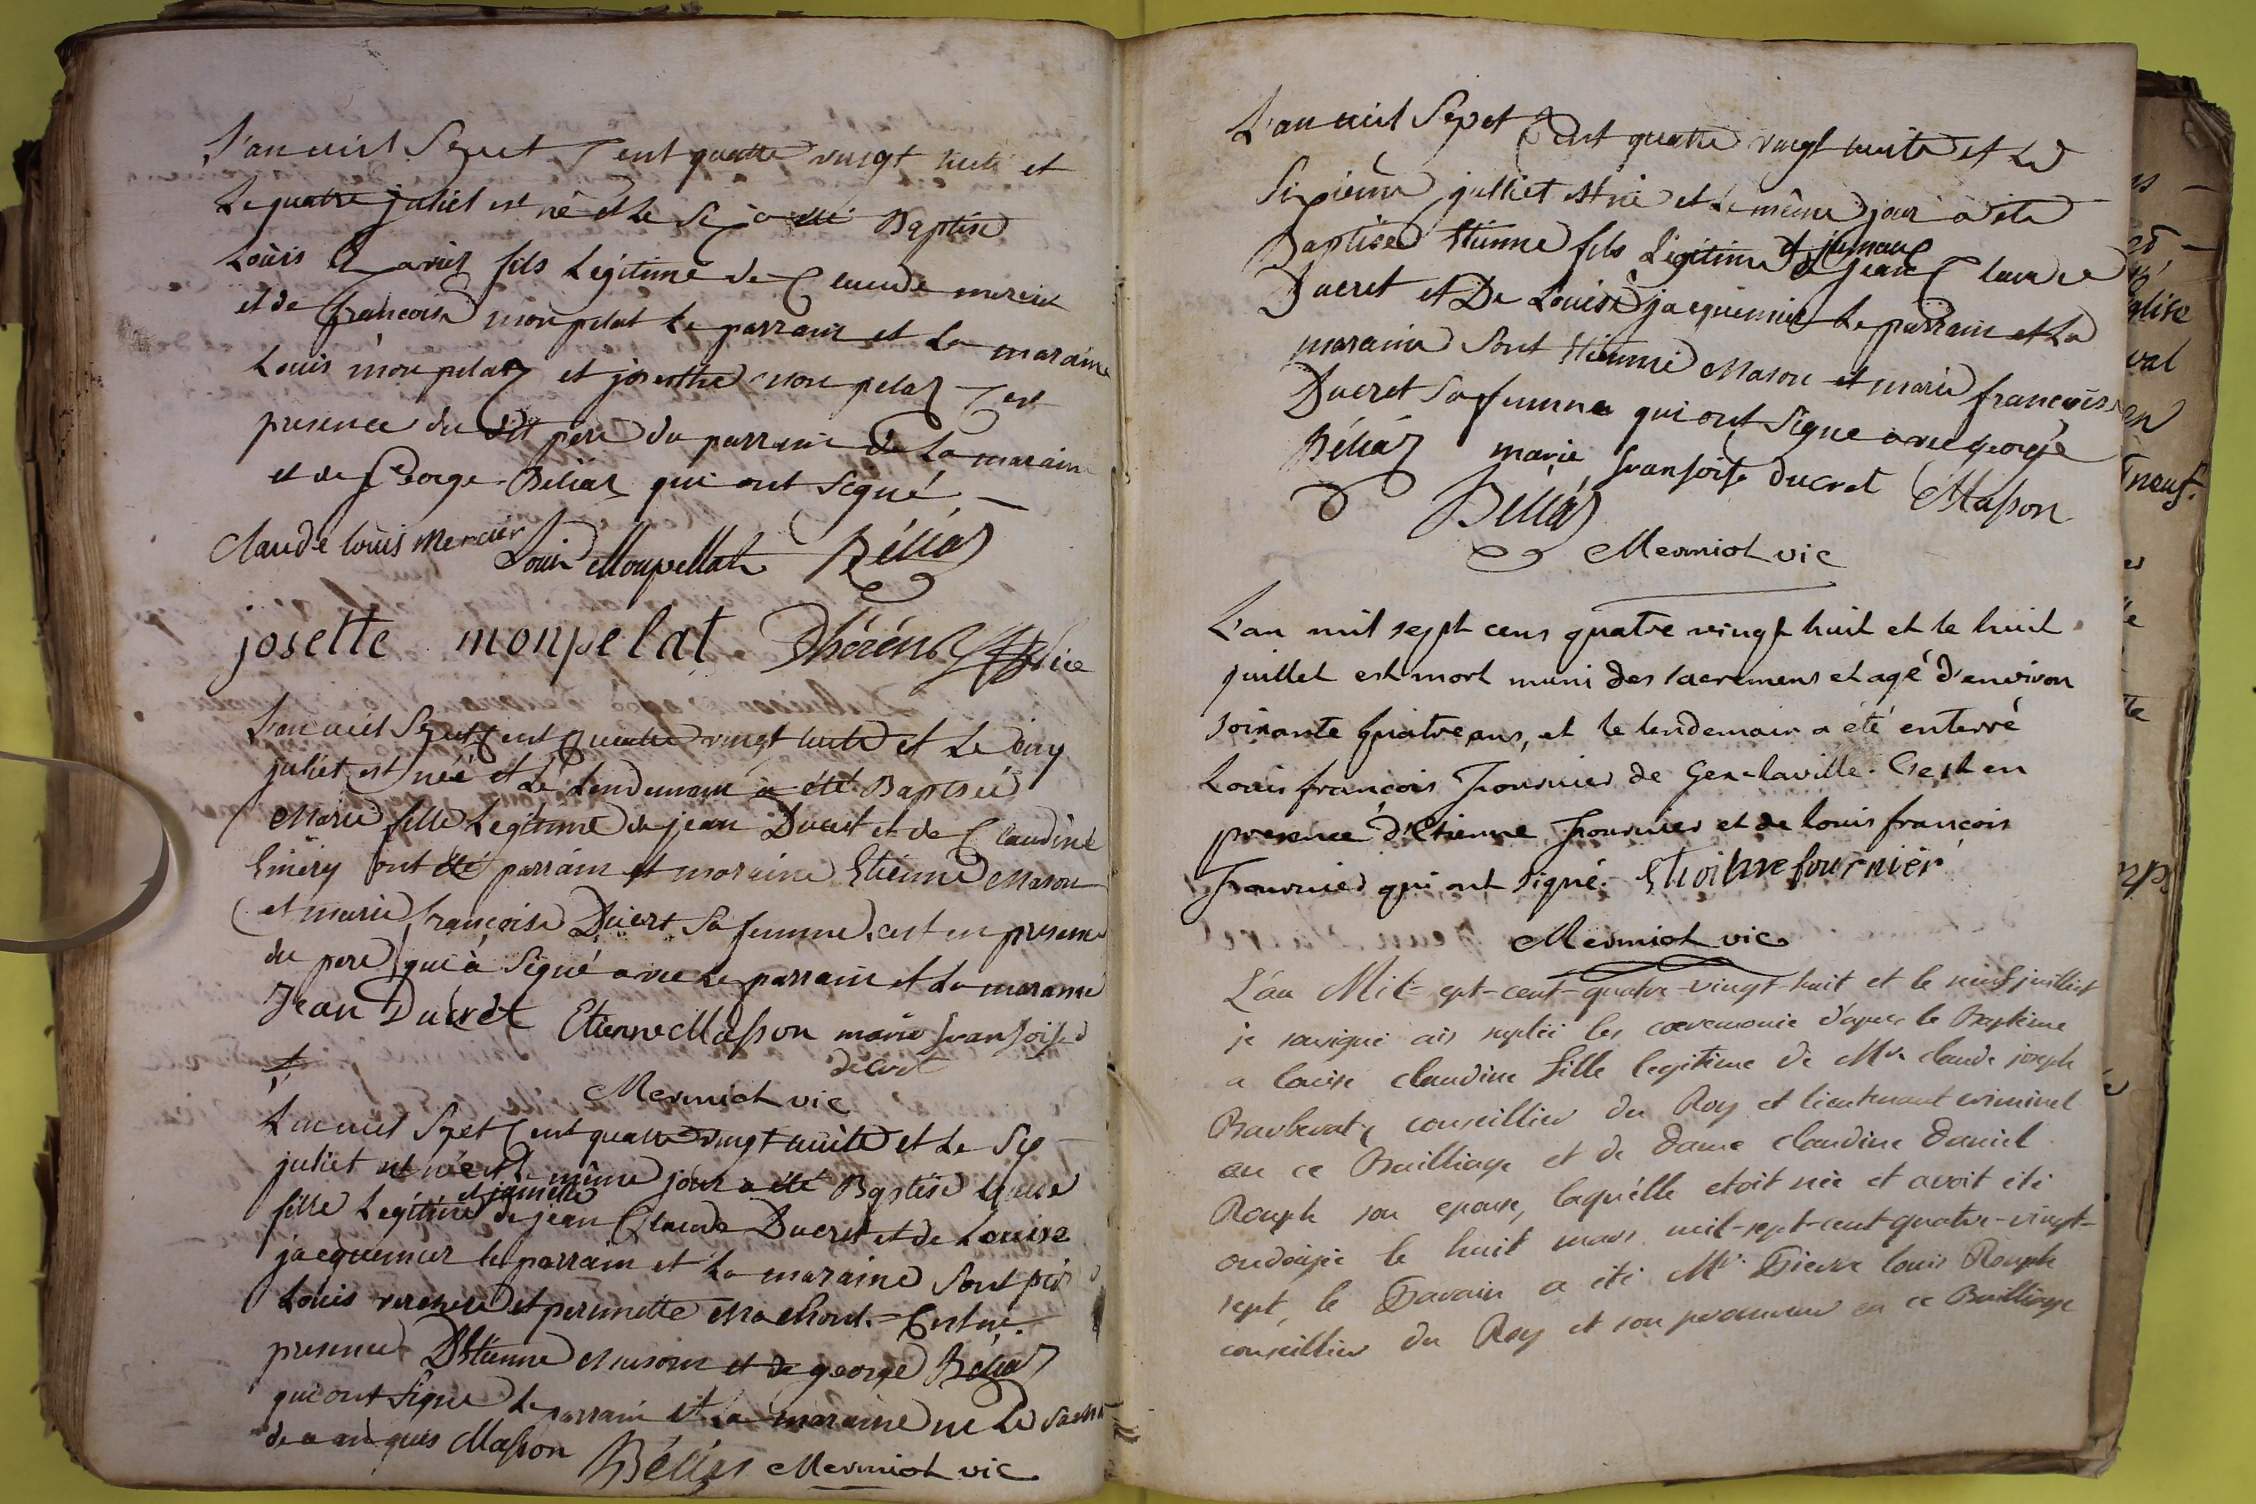 L'an mil Sept Cent quatre vingt huit et
Le quatre juliet est né et Le Si a été Baptisé
Loüis Xavier fils Legitime de Claude mercier
et de francoise monpelat Le parrain et La maraine
Louis monpelaz et josephe monpelaz Cest
presence du dit pere du parrain de La maraine
et de George Béliaz qui ont Signé
Claude louis Mercier Louis Monpellat Béliaz
josette monpelat Dhéréns vice
Lan mil Sept Cent Quatre vingt huite et Le cinq
juliet est née et Le Lendemain a été Baptisée
Marie fille Legitime de jean Ducret et de Claudine
Emery ont été parrain et maraine Etienne Mason
et marie francoise Ducret Sa femme. cest en presence
du pere qui à Signé avec Le parrain et La maraine
Jean Ducret Etienne Masson marie fransoise
ducret
Mermiot vic
Lan mil Sept Cent quatre vingt huite et Le Six
juliet est née et Le même jour a été Baptise Louise
et jumelle
fille Legitime de jean Claude Ducret et de Louise
jacquemier le parrain et La maraine Sont pier
Louis verchere et pernette Machout. = Cest en
presence D'Etienne Masons et de george Béliaz
qui ont Signe Le parrain et La maraine ne Le Sachant
de ce enquis Masson Béliaz Mermiot vic
L'an mil Sept Cent quatre vingt huite et Le
Sixieme julliet est né et Le même jour a été
et jumau
Baptisé Etienne fils Légitime de Jean Claude
Ducret et De Louise jacquemier Le parrain et La
maraine Sont Etienne Mason et marie francoise
Ducret Sa femme qui ont Signe avec george
Béliaz marie fransoise ducret Masson
Béliaz
Mermiot vic
L'an mil sept cens quatre vingt huit et le huit
juillet est mort muni des sacremens et agé d'environ
soixante quatre ans, et le lendemain a été enterré
Louis françois Fournier de Gex-la ville. C'est en
presence d'Etienne Fournier et de louis françois
Fournier qui ont signé. Ettoinne fournier
Mermiot vic
L'an Mil-sept-cent-quatre-vingt-huit et le neuf juillet
je sousigné ais suplée les cœremonie d'apres le Baptéme
a louise claudine fille legitime de Mr. claude joseph
Barberat, conseillier du Roy et lieutenant criminel
au ce Bailliage et de Dame claudine Daniel
Rouph son epouse, laquélle etoit née et avoit été
ondoiée le huit mars mil-sept-cent-quatre-vingt-
sept, le Parain a été Mr. Pierre louis Rouph
conseillier du Roy et son procureur en ce Bailliage